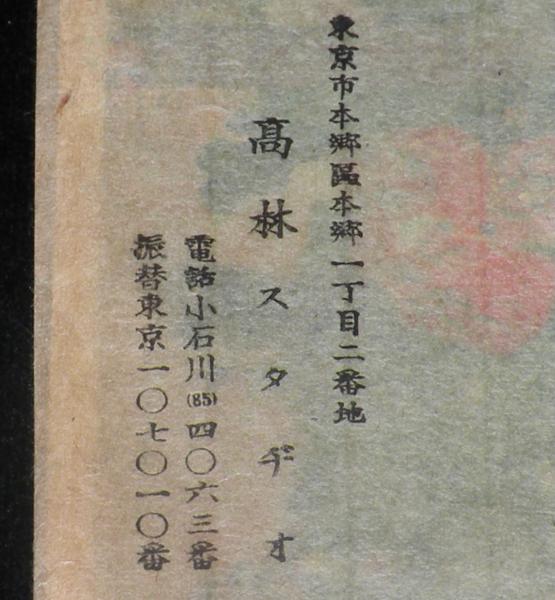 東京市本郷區本郷一丁目二番地
高林スタヂオ
電話小石川(85)四〇六三番
振替東京一〇七〇一〇番